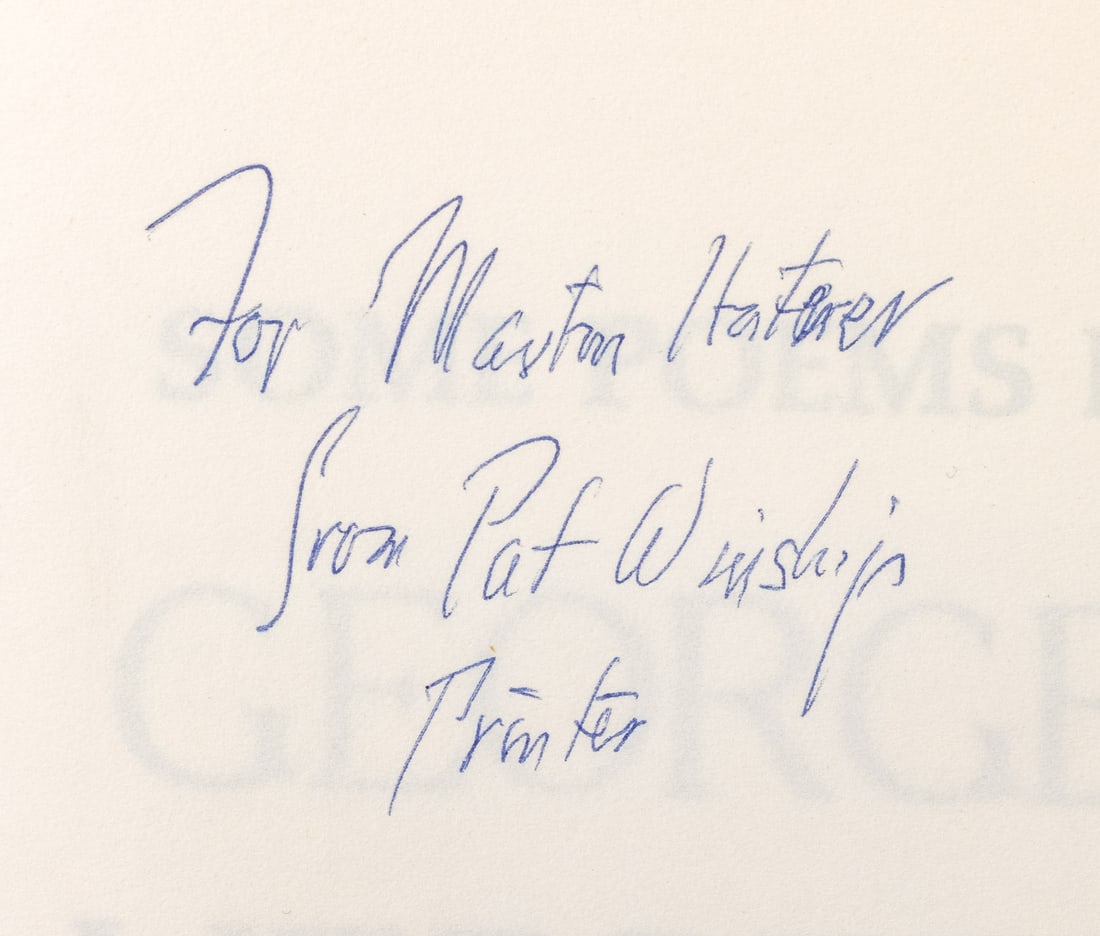 For Martin
from Pat Winship
Printer
SOME POEMS
GEORGE